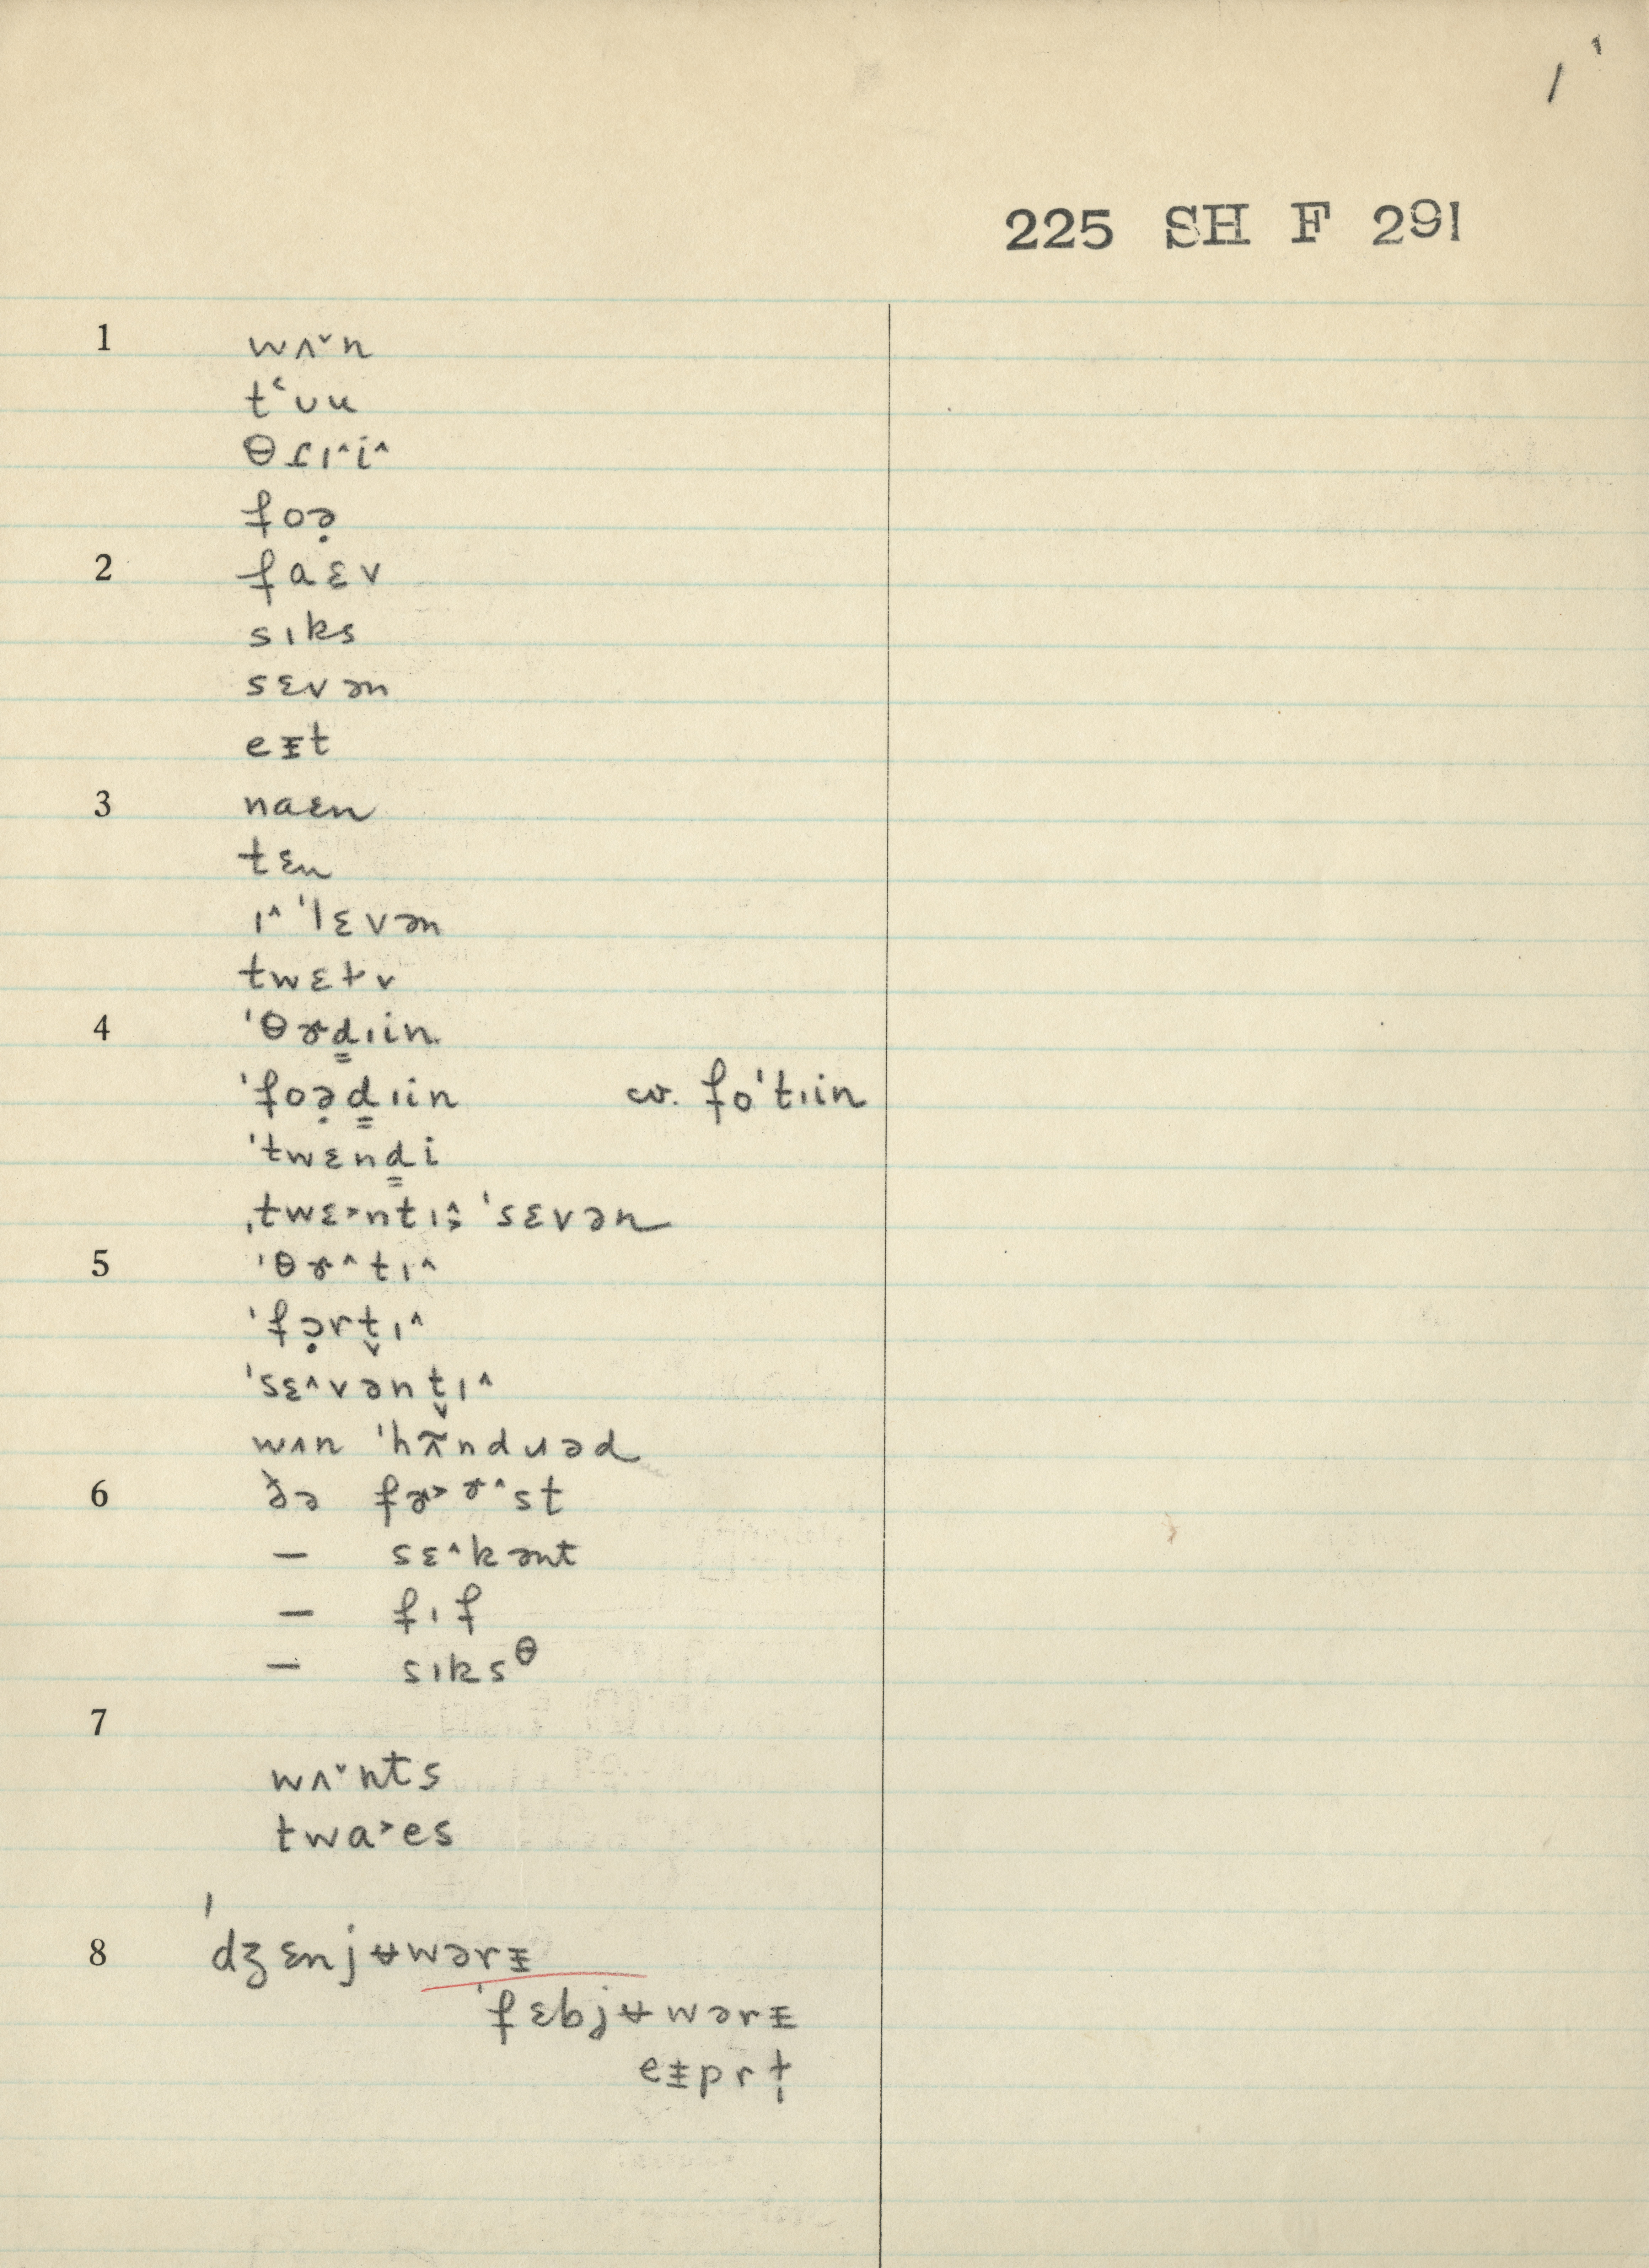 1
225 SH F 291
1 wʌ˅n
tʻᴜu
θɹɪ˄i˄
foə̣
2 faɛv
sɪks
sɛvən
eᵻt
3 naɛn
tɛn
ɪ˄ˈlɛvən
twɛɫv
4 ˈθɚd̳ɪin
ˈfoə̣d̳ɪin cv. foˈtɪin
ˈtwɛnd̳i
ˌtwɛ˃ntɪ˄ ˈsɛvən
5 ˈθɚ˄tɪ˄
ˈfɔ̣rt̬ɪ˄
ˈsɛ˄vənt̬ɪ˄
wʌn ˈhʌ̃ndɹəd
6 ðə fɚ˃ɚ˄st
— sɛ˄kənt
— fɪf
— sɪksᶿ
7
wʌ˅nts
twa˃es
8 ˈdʒɛnjʉwərᵻ
ˈfɛbjʉwərᵻ
eᵻprɫ̩